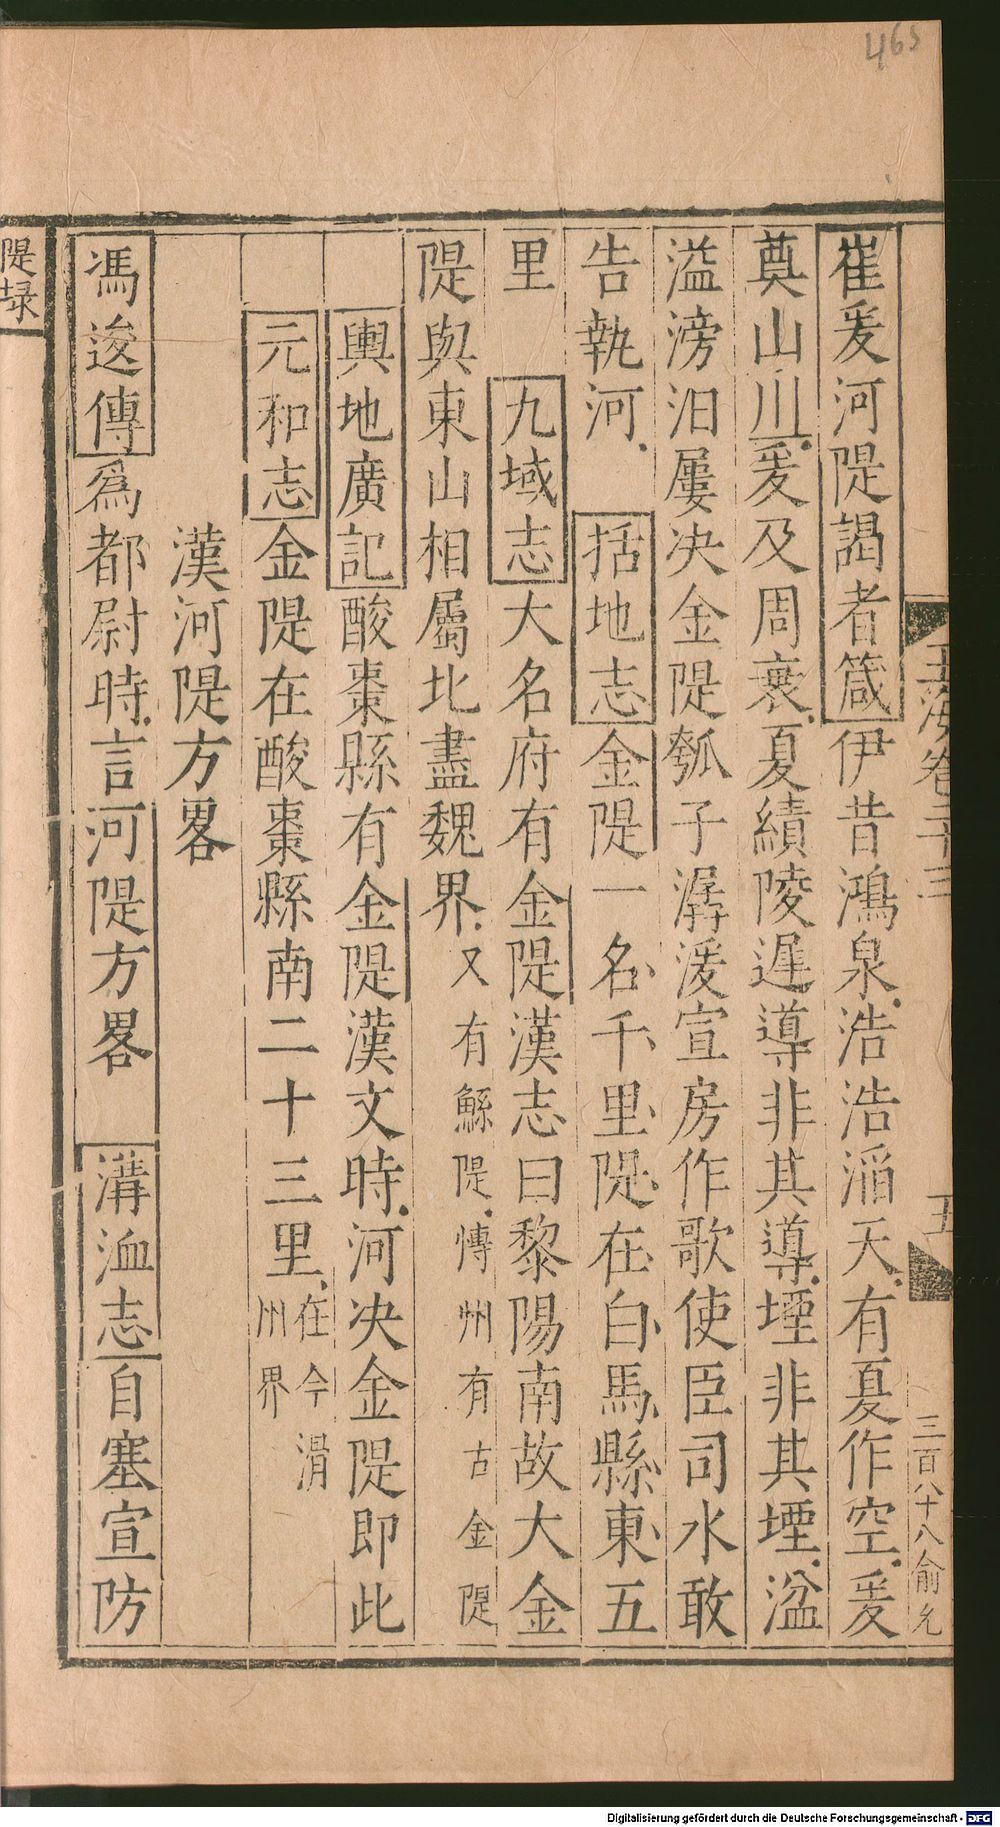 465
玉海卷二十三
五
三百八十八俞允
崔爰河隄謁者箴伊昔鴻泉浩浩滔天有夏作空爰
奠山川爰及周衰夏績陵遲導非其導堙非其堙湓
溢滂汩屢决金隄瓠子潺湲宣房作歌使臣司水敢
告執河 括地志金隄一名千里隄在白馬縣東五
里 九域志大名府有金隄漢志曰黎陽南故大金
隄與東山相屬北盡魏界又有鯀隄慱州有古金隄
輿地廣記酸棗縣有金隄漢文時河决金隄即此
元和志金隄在酸棗縣南二十三里在今滑州界
漢河隄方畧
馮逡傳爲都尉時言河隄方畧 溝洫志自塞宣防
隄埭
Digitalisierung gefördert durch die Deutsche Forschungsgemeinschaft - DFG